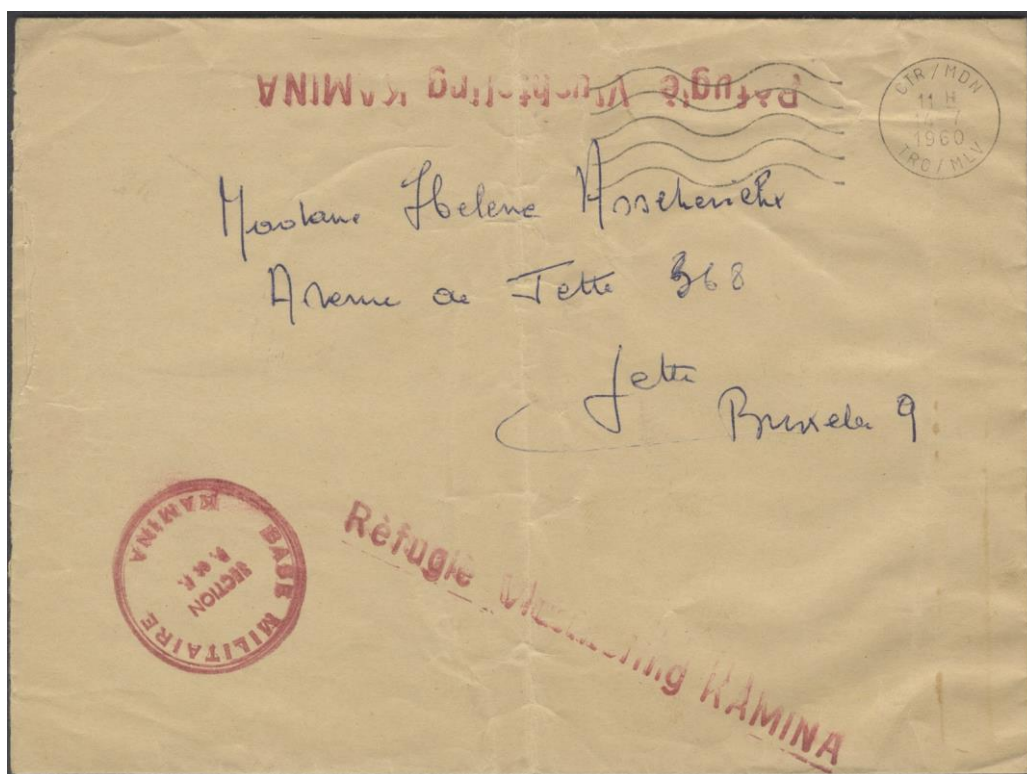 Réfugié Vluchteling KAMINA
CTR/MDN
11 H
14-7
1960
TRC/MLV
Madame Helene
Avenue de Jette 368
Jette
Bruxelles 9
BASE MILITAIRE
KAMINA
SECTION
Réfugiè Vluchteling KAMINA